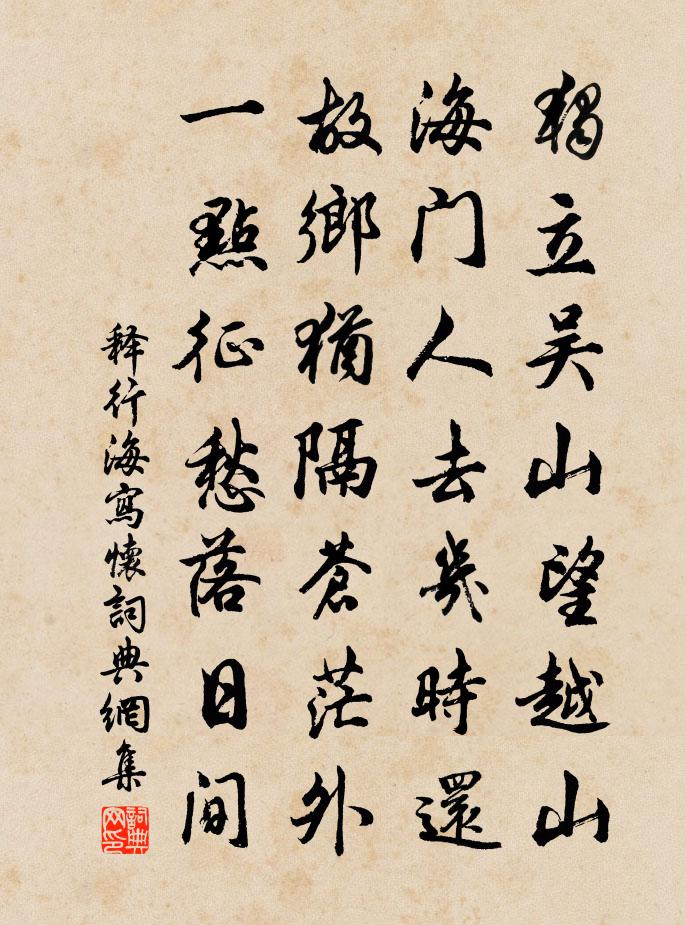 獨立吳山望越山
海门人去幾時還
故鄉猶隔蒼茫外
一點征愁落日间
释行海寫懷詞典網集
詞典网印